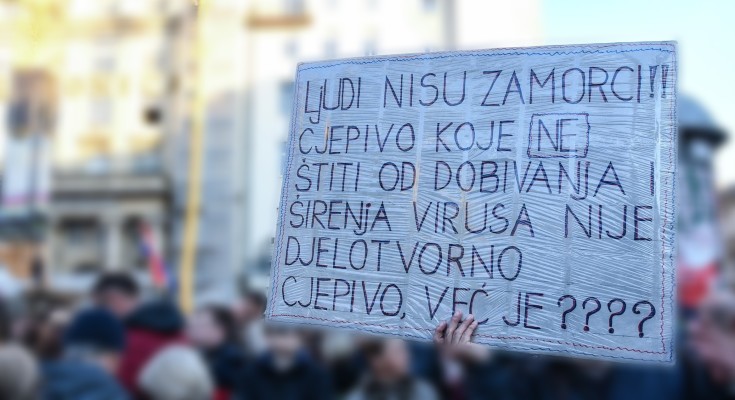 LJUDI NISU ZAMORCI!!
CJEPIVO KOJE NE
ŠTITI OD DOBIVANJA I
ŠIRENJA VIRUSA NIJE
DJELOTVORNO
CJEPIVO, VEĆ JE ????